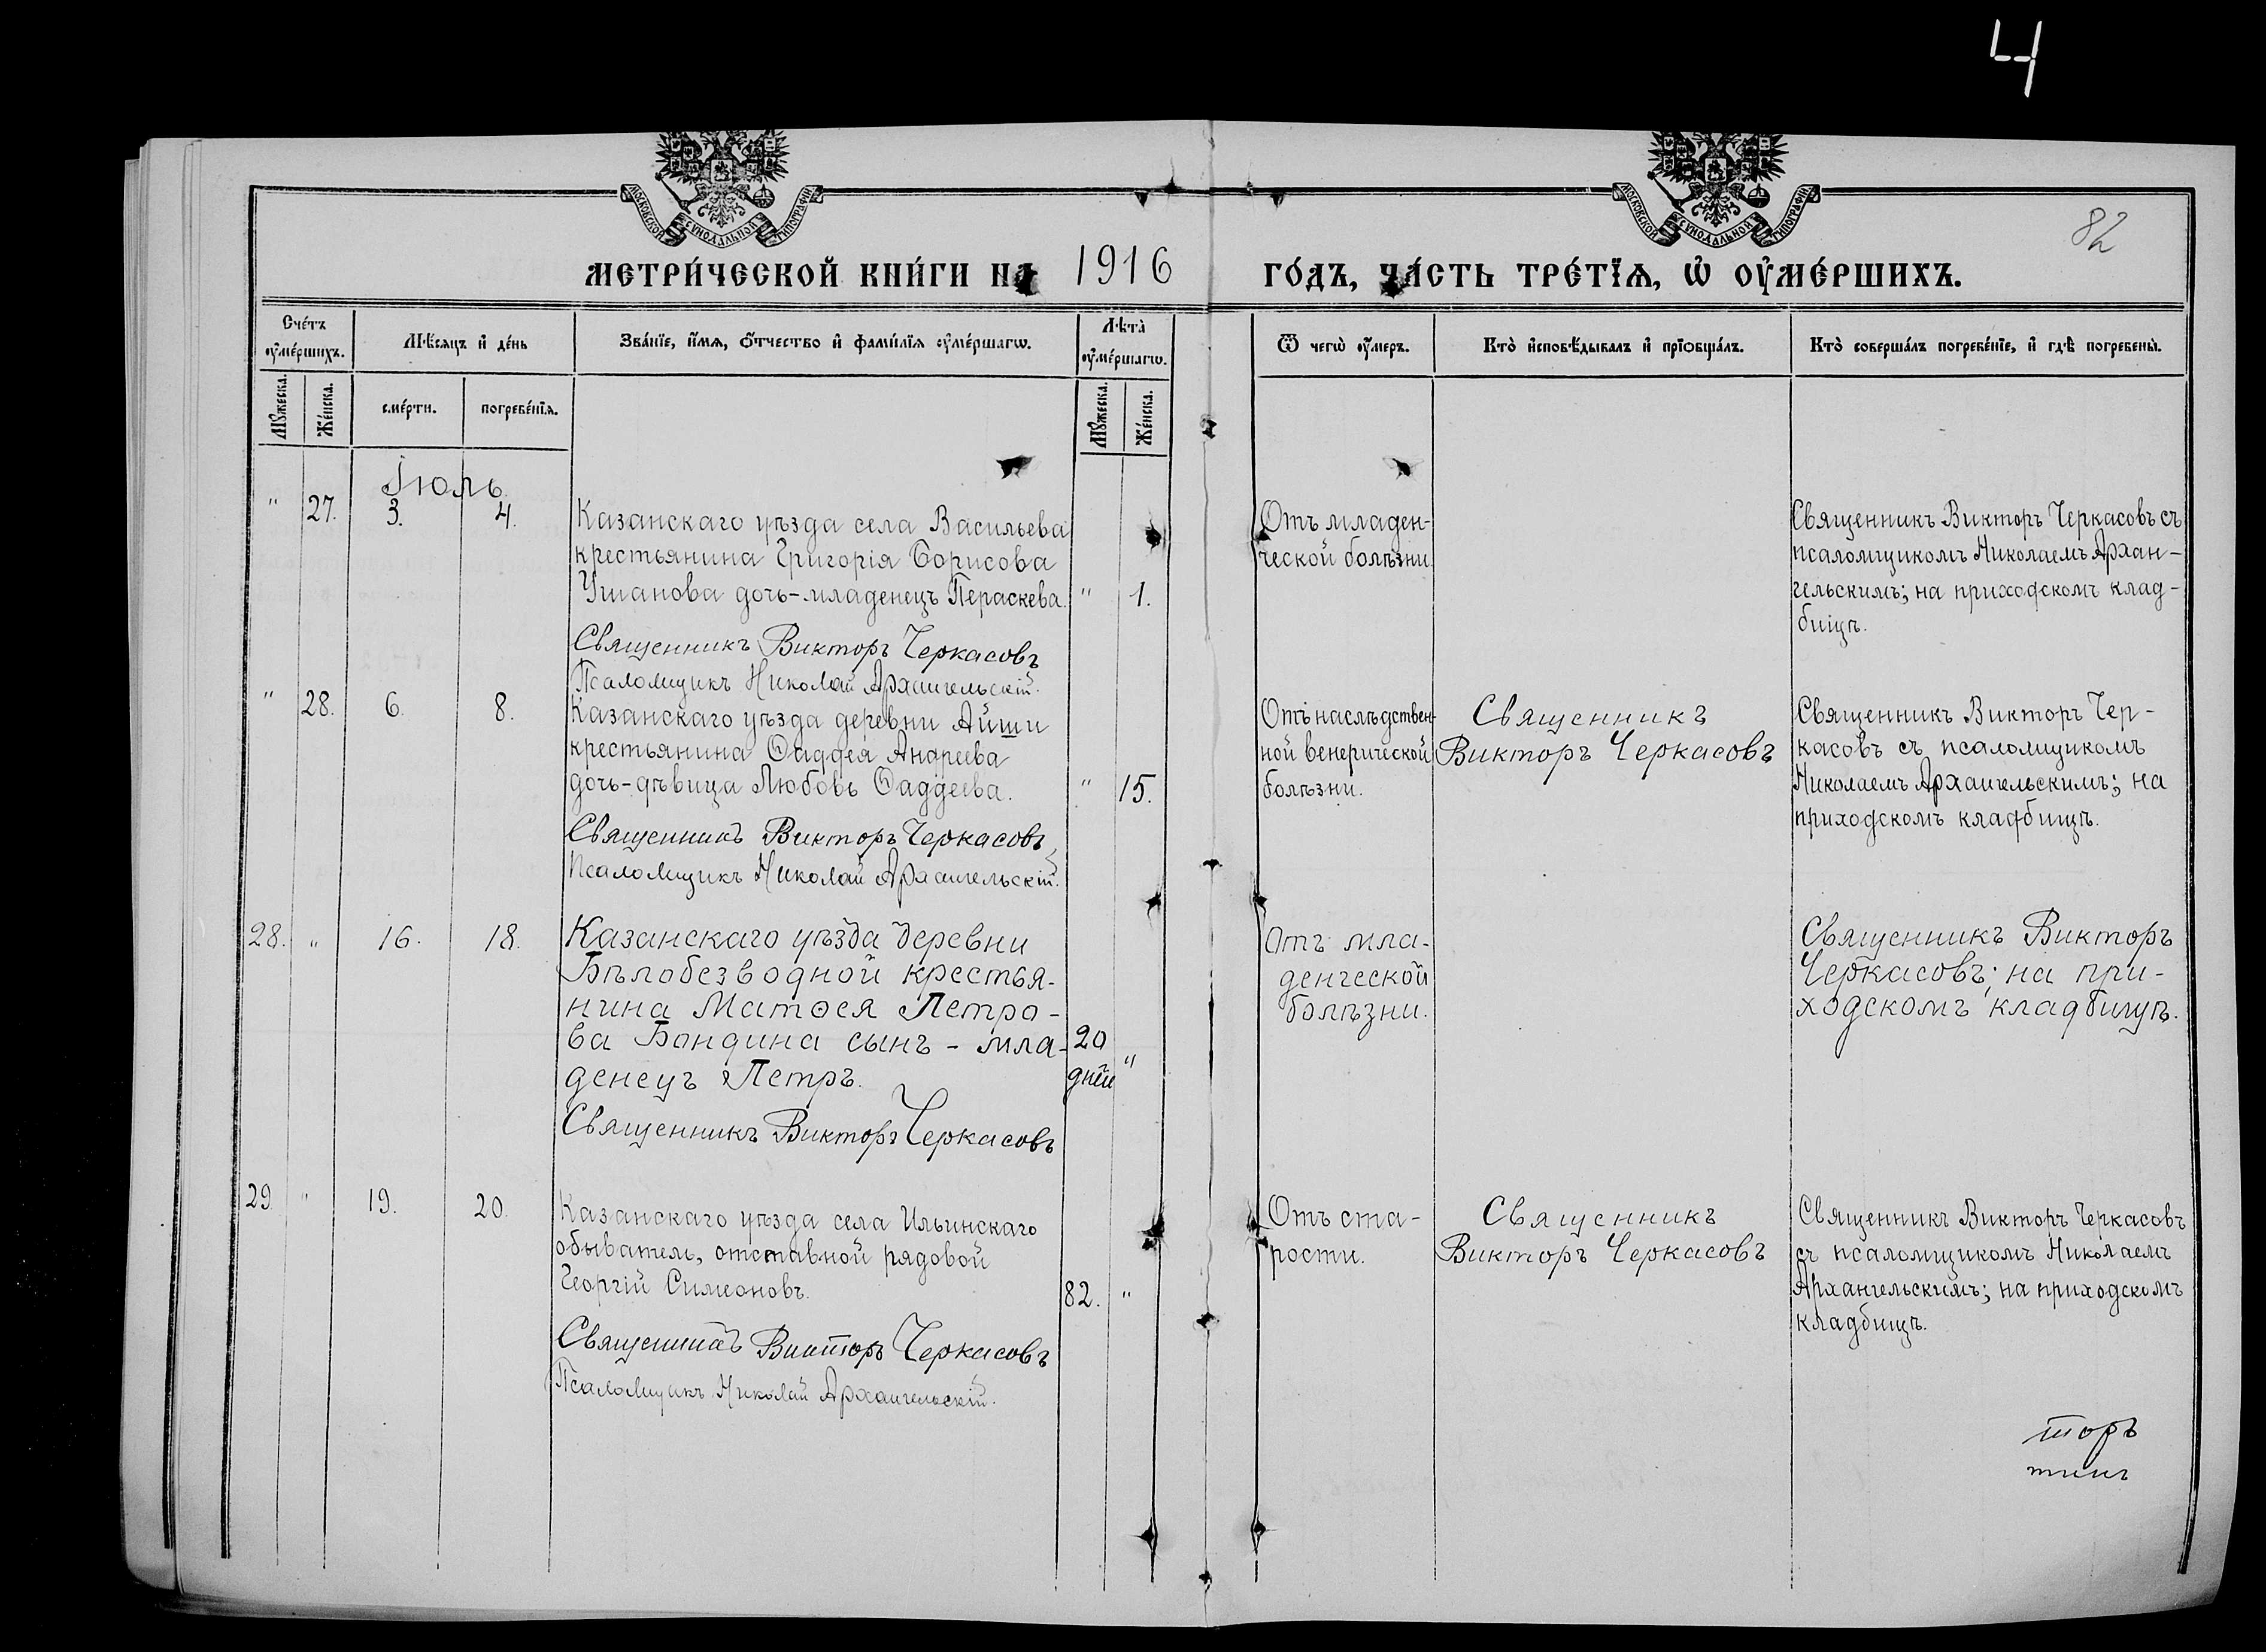 4
МОСКОВСКОЙ СУНОДАЛЬНОЙ ТИПОГРАФІИ
МОСКОВСКОЙ СУНОДАЛЬНОЙ ТИПОГРАФІИ
82
МЕТРИ́ЧЕСКОЙ КНИ́ГИ НА 1916 ГО́ДЪ, ЧА́СТЬ ТРЕ́ТЇѦ, Ѡ҆ ОУ҆МЕ́РШИХЪ.
Сче́тъ оу҆ме́ршихъ.
Мѣ́сяцъ и҆ де́нь
Зва́нїе, и҆́мѧ, ѻ҆́тчество и҆ фами́лїѧ оу҆ме́ршагѡ.
Лѣ́та оу҆ме́ршагѡ.
Ѿ чегѡ̀ оу҆́меръ.
Кто̀ и҆сповѣ́дывалъ и҆ прїѡбща́лъ.
Кто̀ соверша́лъ погребе́нїе, и҆ гдѣ̀ погребены̀.
Мꙋ́жеска.
Же́нска.
сме́рти.
погребе́нїѧ.
Мꙋ́жеска.
Же́нска.
Іюль.
" 27. 3. 4.
Казанскаго уѣзда села Васильева
крестьянина Григорія Борисова
Ушанова дочь-младенецъ Пераскева. " 1.
Священникъ Викторъ Черкасовъ
Псаломщикъ Николай Архангельскій.
Отъ младен-
ческой болѣзни.
Священникъ Викторъ Черкасовъ съ
псаломщикомъ Николаемъ Архан-
гельскимъ; на приходскомъ клад-
бищѣ.
" 28. 6. 8.
Казанскаго уѣзда деревни Айши
крестьянина Ѳаддея Андреева
дочь-дѣвица Любовь Ѳаддеева. " 15.
Священникъ Викторъ Черкасовъ
Псаломщикъ Николай Архангельскій.
Отъ наслѣдствен-
ной венерической
болѣзни.
Священникъ
Викторъ Черкасовъ
Священникъ Викторъ Чер-
касовъ съ псаломщикомъ
Николаемъ Архангельскимъ; на
приходскомъ кладбищѣ.
28. " 16. 18.
Казанскаго уѣзда деревни
Бѣлобезводной крестья-
нина Матѳея Петро-
ва Бандина сынъ - мла-
денецъ Петръ.
20 дней "
Священникъ Викторъ Черкасовъ
Отъ мла-
денческой
болѣзни.
Священникъ Викторъ
Черкасовъ; на при-
ходскомъ кладбищѣ.
29 " 19. 20.
Казанскаго уѣзда села Ильинскаго
обыватель, отставной рядовой
Георгій Симеоновъ. 82. "
Священникъ Викторъ Черкасовъ
Псаломщикъ Николай Архангельскій.
Отъ ста-
рости.
Священникъ
Викторъ Черкасовъ
Священникъ Викторъ Черкасовъ
съ псаломщикомъ Николаемъ
Архангельскимъ; на приходскомъ
кладбищѣ.
торъ